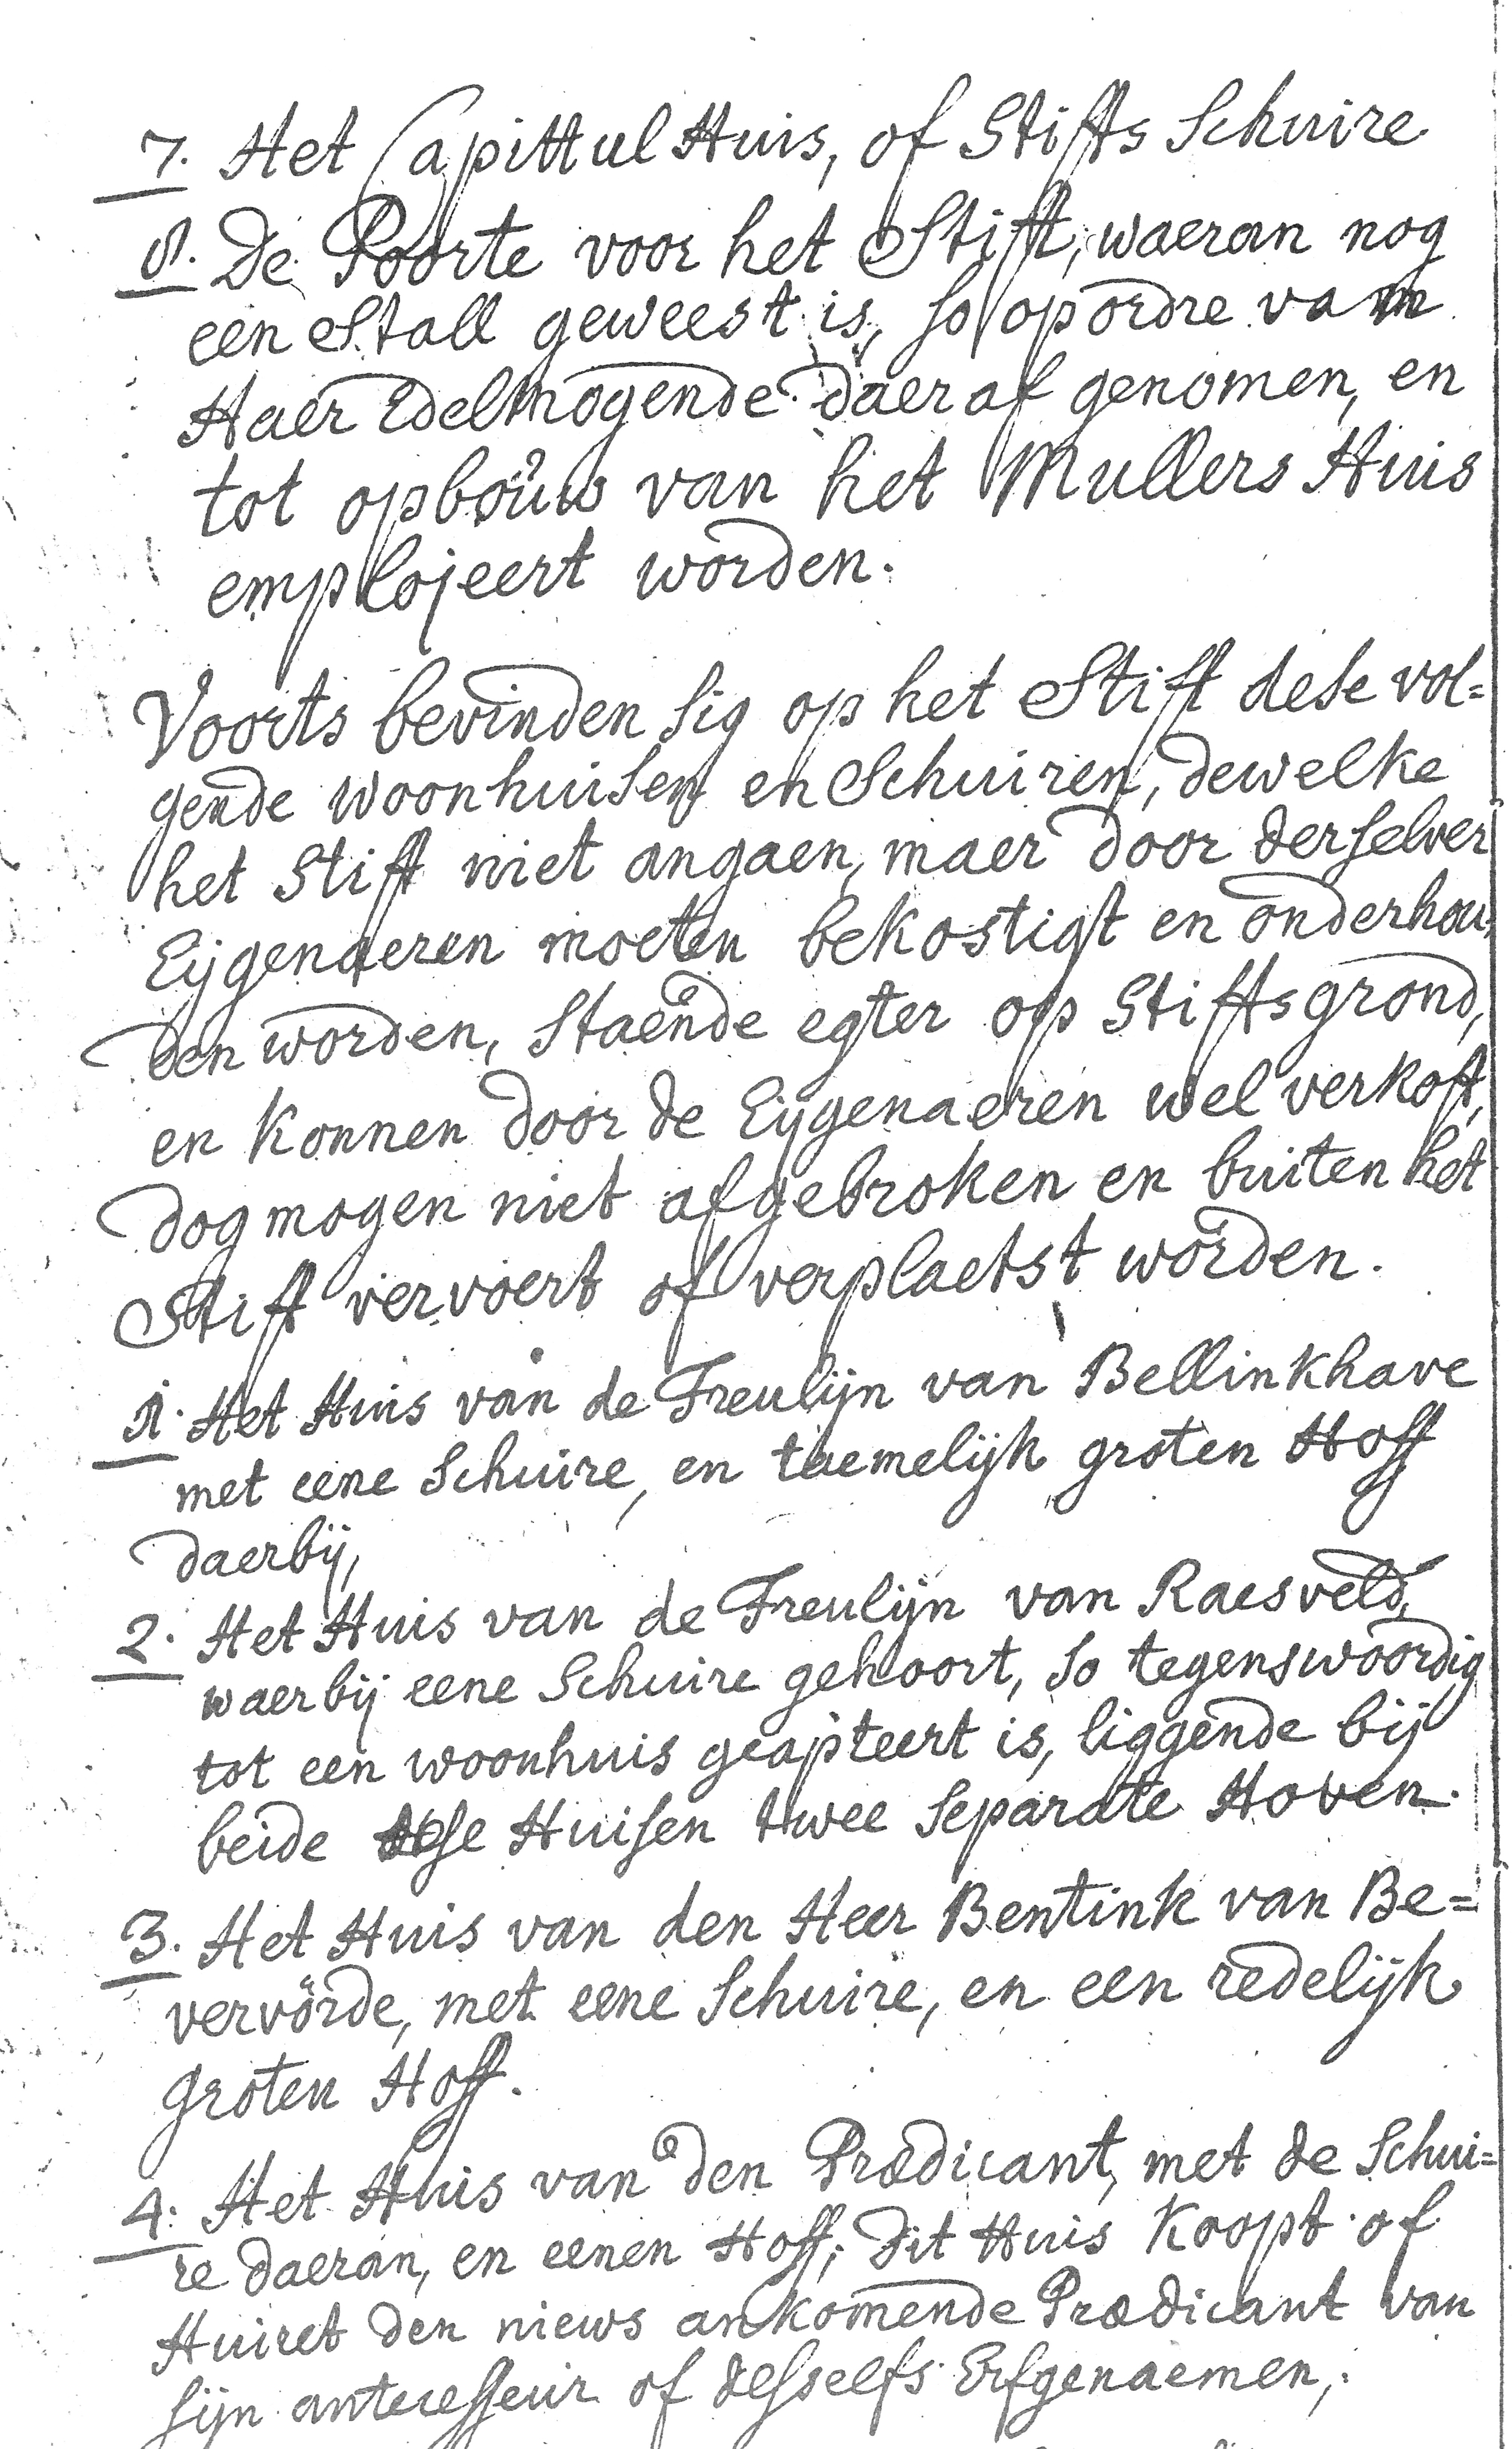 7. Het Capittul Huis, of Stiffts Schuire
8. De Poorte voor het Stifft, waeran nog
een Stall geweest is, so op ordre van
Haer Edelmogende daer af genomen, en
tot opbouw van het Mullers Huis
emplojeert worden.
Voorts bevinden sig op het Stifft dese vol=
gende woonhuisen en Schuiren, dewelke
het Stifft niet angaen, maer door derselver
Eijgenaeren moeten bekostigt en onderhou=
den worden, staende egter op Stiffts grond,
en konnen door de Eijgenaeren wel verkofft,
dog mogen niet afgebroken en buiten het
Stifft vervoert of verplaetst worden.
1. Het Huis van de Freulijn van Bellinkhave
met eene Schuire, en taemelijk groten Hoff
daerbij,
2. Het Huis van de Freulijn van Raesveld,
waerbij eene Schuire gehoort, so tegenswoordig
tot een woonhuis geapteert is, liggende bij
beide dese Huisen twee separate Hoven.
3. Het Huis van den Heer Bentink van Be=
vervörde, met eene Schuire, en een redelijk
groten Hoff.
4. Het Huis van den Prædicant, met de Schui=
re daeran, en eenen Hoff; dit Huis koopt of
Huiret den niews ankomende Prædicant van
sijn antecesseur of desselfs Erfgenaemen,